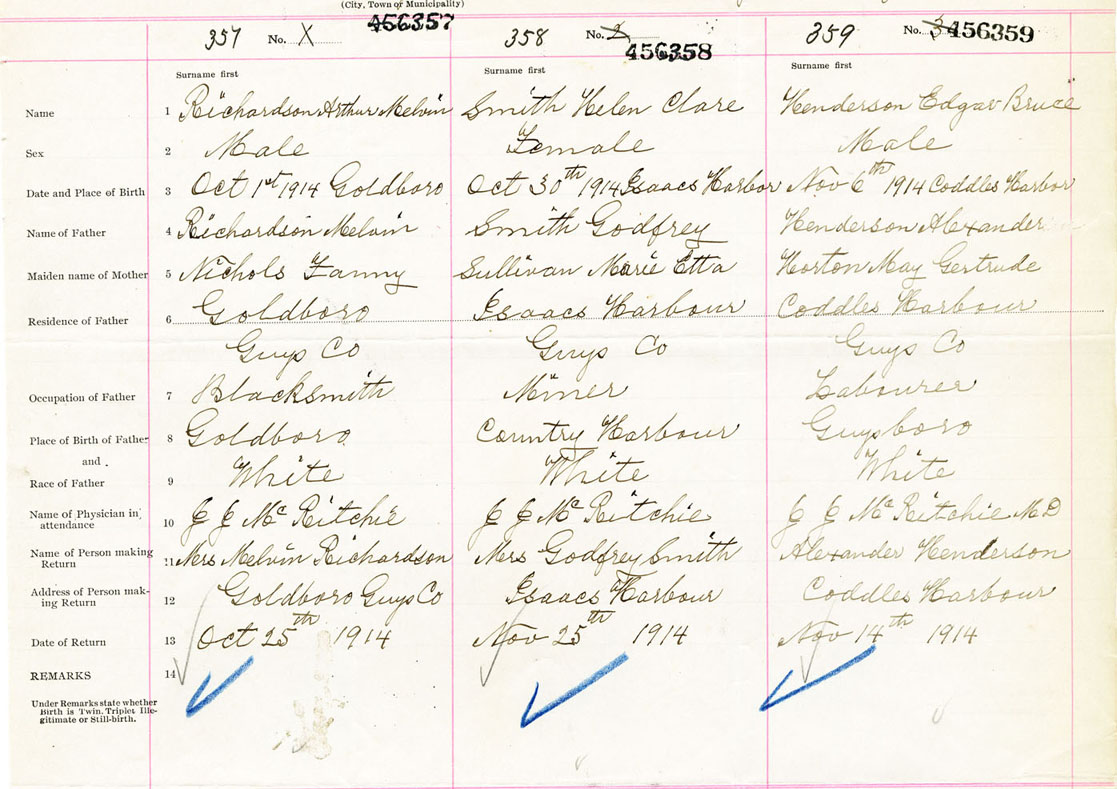 (City, Town or Municipality)
357 No. X 456357 358 No. 2 456358 359 No. 3 456359
Surname first Surname first Surname first
Name 1 Richardson Arthur Melvin Smith Helen Clare Henderson Edgar Bruce
Sex 2 Male Female Male
Date and Place of Birth 3 Oct 1st 1914 Goldboro Oct 30th 1914 Isaacs Harbor Nov 6th 1914 Coddles Harbor
Name of Father 4 Richardson Melvin Smith Godfrey Henderson Alexander
Maiden name of Mother 5 Nichols Fanny Sullivan Marie Etta Horton May Gertrude
Residence of Father 6 Goldboro Isaacs Harbour Coddles Harbour
Guys Co Guys Co Guys Co
Occupation of Father 7 Blacksmith Miner Labourer
Place of Birth of Father 8 Goldboro Country Harbour Guysboro
and
Race of Father 9 White White White
Name of Physician in attendance 10 McRitchie McRitchie McRitchie MD
Name of Person making Return 11 Mrs Melvin Richardson Mrs Godfrey Smith Alexander Henderson
Address of Person mak-
ing Return 12 Goldboro Guys Co Isaacs Harbour Coddles Harbour
Date of Return 13 Oct 25th 1914 Nov 25th 1914 Nov 14th 1914
REMARKS 14
Under Remarks state whether
Birth is Twin. Triplet Ille-
gitimate or Still-birth.